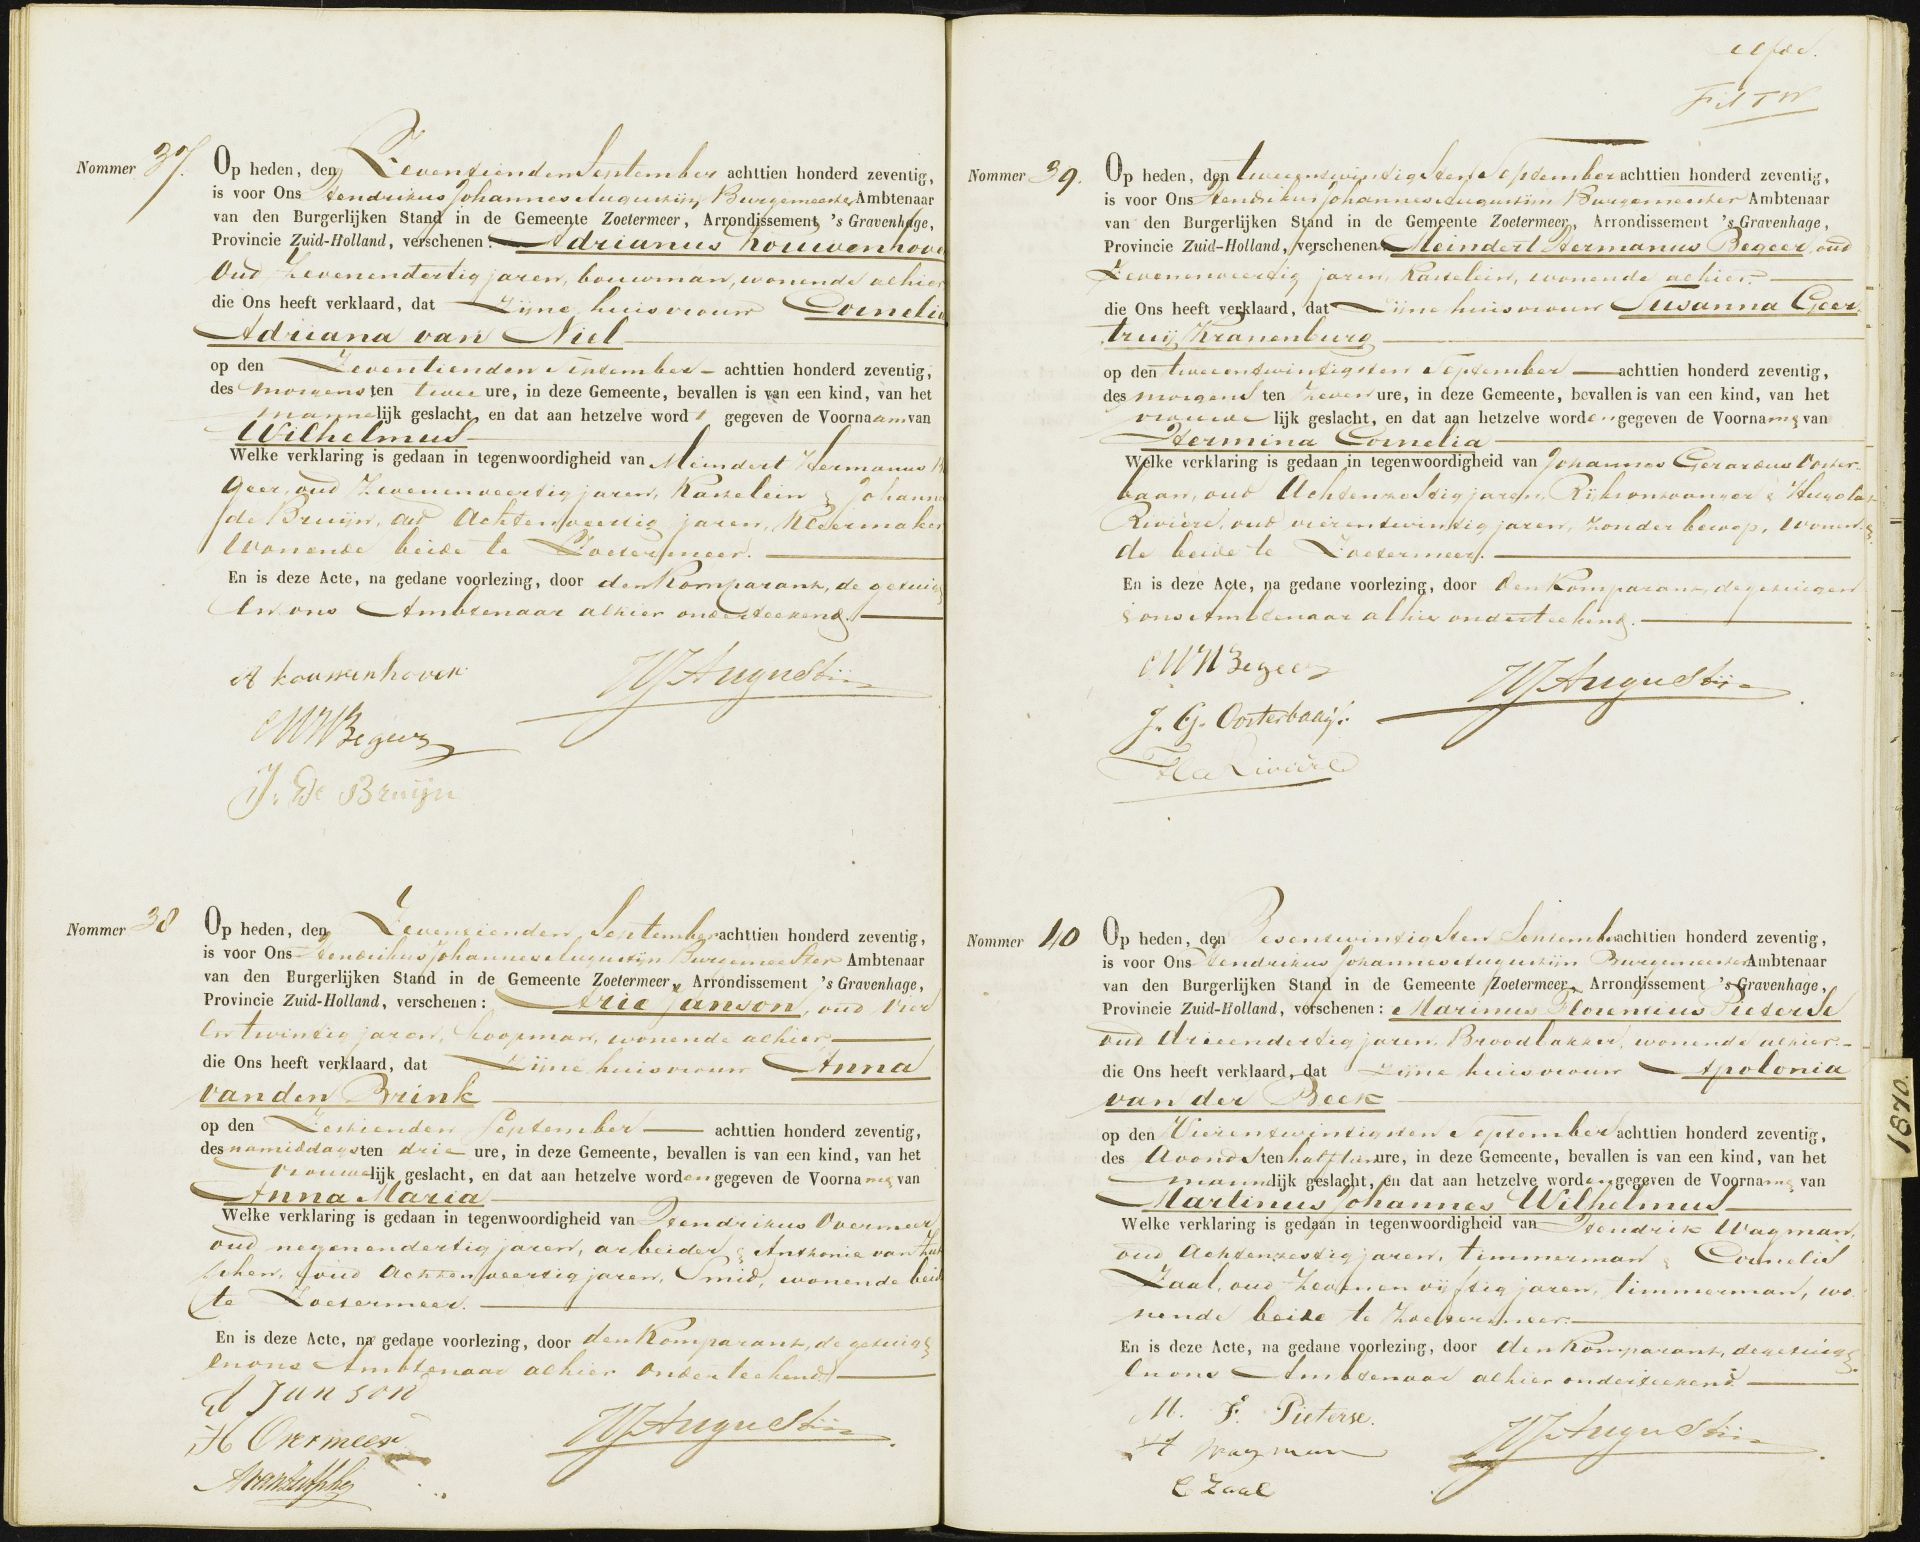 Nommer 37.
Op heden, den Zeventienden September achttien honderd zeventig,
is voor Ons Hendrikus Johannes Augustijn, Burgemeester Ambtenaar
van den Burgerlijken Stand in de Gemeente Zoetermeer, Arrondissement 's Gravenhage,
Provincie Zuid-Holland, verschenen: Adrianus Kouwenhoven
Oud Zevenendertig jaren, bouwman, wonende alhier
die Ons heeft verklaard, dat Zijne huisvrouw Cornelia
Adriana van Niel
op den Zeventienden September achttien honderd zeventig,
des morgens ten twee ure, in deze Gemeente, bevallen is van een kind, van het
mannelijk geslacht, en dat aan hetzelve word gegeven de Voornaam van
Wilhelmus
Welke verklaring is gedaan in tegenwoordigheid van Meindert Hermanus Be
geer, oud Zevenenveertig jaren, Kastelein & Johannes
de Bruijn, oud Achtenveertig jaren, Kleermaker
Wonende beide te Zoetermeer.
En is deze Acte, na gedane voorlezing, door den Komparant, de getuigen
en ons Ambtenaar alhier onderteekend.
A Kouwenhoven
HJAugustijn
MHBegeer
J. De Bruijn
Nommer 38
Op heden, den Zeventienden September achttien honderd zeventig,
is voor Ons Hendrikus Johannes Augustijn Burgemeester Ambtenaar
van den Burgerlijken Stand in de Gemeente Zoetermeer, Arrondissement 's Gravenhage,
Provincie Zuid-Holland, verschenen: Arie Janson, oud Vier
en twintig jaren, koopman, wonende alhier
die Ons heeft verklaard, dat Zijne huisvrouw Anna
van den Brink
op den Zestienden September achttien honderd zeventig,
des namiddags ten drie ure, in deze Gemeente, bevallen is van een kind, van het
vrouwelijk geslacht, en dat aan hetzelve worden gegeven de Voorname van
Anna Maria
Welke verklaring is gedaan in tegenwoordigheid van Hendrikus Overmeer
oud negenendertig jaren, arbeider & Anthonie van Zut
phen, oud Achtenveertig jaren, Smid, wonende beide
te Zoetermeer.
En is deze Acte, na gedane voorlezing, door den Komparant, de getuigen
en ons Ambtenaar alhier onderteekend
A Janson
H Overmeer
HJAugustijn
AvanZutphen
Nommer 39.
Op heden, den tweeentwintigsten September achttien honderd zeventig,
is voor Ons Hendrikus Johannes Augustijn Burgemeester Ambtenaar
van den Burgerlijken Stand in de Gemeente Zoetermeer, Arrondissement 's Gravenhage,
Provincie Zuid-Holland, verschenen Meindert Hermanus Begeer, oud
Zevenenveertig jaren, Kastelein, wonende alhier.
die Ons heeft verklaard, dat Zijne huisvrouw Susanna Geer
truij Kranenburg
op den tweeentwintigsten September achttien honderd zeventig,
des morgens ten Zeven ure, in deze Gemeente, bevallen is van een kind, van het
vrouwelijk geslacht, en dat aan hetzelve worden gegeven de Voorname van
Hermina Cornelia
Welke verklaring is gedaan in tegenwoordigheid van Johannes Gerardus Ooster
baan, oud Achtenzestig jaren, Rijksontvanger &
Rivière, oud vierentwintig jaren, zonder beroep, wonen
de beide te Zoetermeer.
En is deze Acte, na gedane voorlezing, door den Komparant, de getuigen
& ons Ambtenaar alhier onderteekend.
MHBegeer
HJAugustijn
J. G. Oosterbaan.
La Rivière
Nommer 40
Op heden, den Zesentwintigsten September achttien honderd zeventig,
is voor Ons Hendrikus Johannes Augustijn Burgemeester Ambtenaar
van den Burgerlijken Stand in de Gemeente Zoetermeer, Arrondissement 's Gravenhage,
Provincie Zuid-Holland, verschenen: Marinus Florentius Pieterse
oud drieendertig jaren, Broodbakker, wonende alhier.
die Ons heeft verklaard, dat Zijne huisvrouw Apolonia
van der Beek
op den Vierentwintigsten September achttien honderd zeventig,
des Avonds ten half tien ure, in deze Gemeente, bevallen is van een kind, van het
mannelijk geslacht, en dat aan hetzelve worden gegeven de Voorname van
Martinus Johannes Wilhelmus
Welke verklaring is gedaan in tegenwoordigheid van Hendrik Wagman,
oud Achtenzestig jaren, timmerman & Cornelis
Zaal, oud Zevenenvijftig jaren, timmerman, wo
nende beide te Zoetermeer.
En is deze Acte, na gedane voorlezing, door den Komparant, de getuigen
en ons Ambtenaar alhier onderteekend.
M. F. Pieterse.
H Wagman
HJAugustijn
C Zaal
1870.